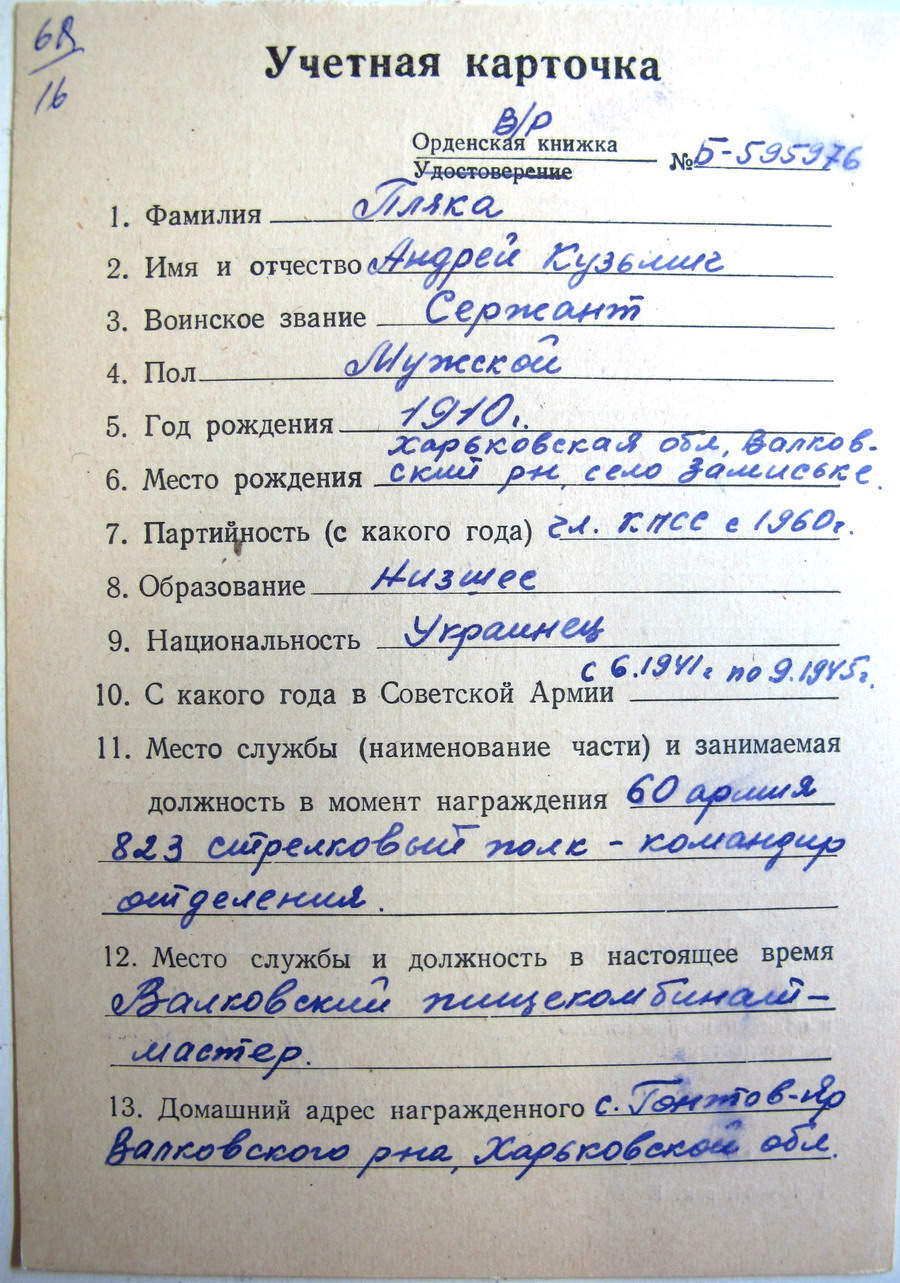 68
16
Учетная карточка
В/Р
Орденская книжка
Удостоверение
№ Б-595976
1. Фамилия Пляка
2. Имя и отчество Андрей Кузьмич
3. Воинское звание Сержант
4. Пол Мужской
5. Год рождения 1910г.
Харьковская обл, Валков-
6. Место рождения ский рн, село Замиське.
7. Партийность (с какого года) чл. КПСС с 1960г.
8. Образование Низшее
9. Национальность Украинец
с 6.1941г по 9.1945г.
10. С какого года в Советской Армии
11. Место службы (наименование части) и занимаемая
должность в момент награждения 60 армия
823 стрелковый полк - командир
отделения.
12. Место службы и должность в настоящее время
Валковский пищекомбинат-
мастер.
13. Домашний адрес награжденного с. Гонтов-Яр
Валковского рна, Харьковской обл.